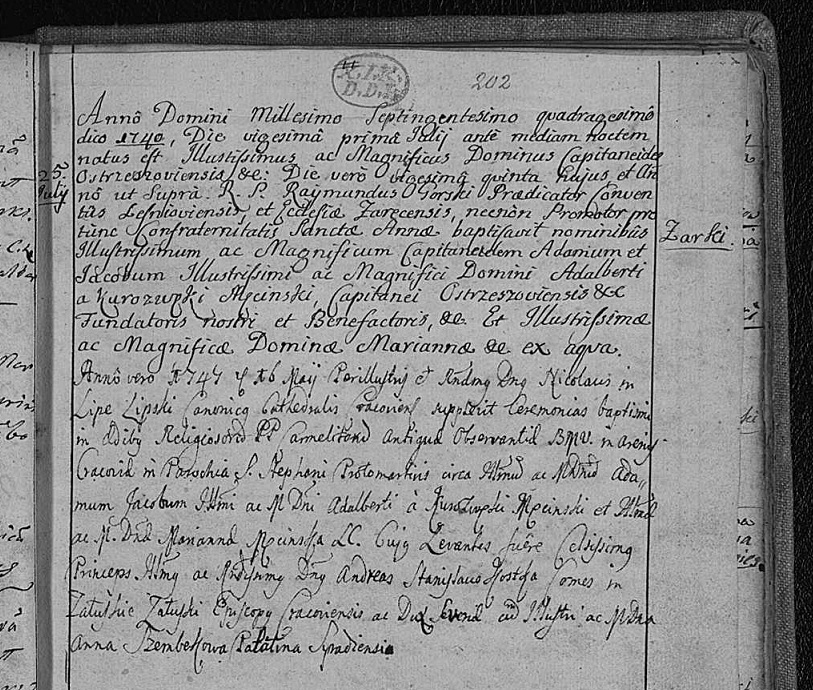 202
Annô Domini Millesimo Septingentesimo quadragesimô
dico 1740, Die vigesimâ primâ Julij antè mediam noctem
natus est Illustrissimus ac Magnificus Dominus Capitaneides
25. Julij
Ostrzeszoviensis &c: Die verò vigesimâ quinta hujus et An
nô ut Suprà. R. P. Raÿmundus Gorski Prædicator Conven
tûs Lesnioviensis, et Ecclesiæ Zarecensis, necnòn Promotor pro
tùnc Confraternitatis Sanctæ Annæ baptisavit nominibùs
Zarki.
Illustrissimum, ac Magnificum Capitaneidem Adamum et
Jacobum Illustrissimi ac Magnifici Domini Adalberti
a Kurozwęki Męcinski, Capitanei Ostrzeszoviensis &c
Fundatoris nostri et Benefactoris, &c. Et Illustrissimæ
ac Magnificæ Dominæ Mariannæ &c ex aqva.
Annô vero 1747 16 Maij Perillustris et Rndmg Dng Nicolaus in
Lipe Lipski Canonicg Cathedralis Cracoviens supplevit Ceremonias baptismi
in Religiosorū PP Carmelitarū Antiquæ Observantiæ BMV. in Arenis
Cracoviæ in Parochia S. Stephani Protomartiris circa Illmū ac M Dnū Ada„
mum Jacobum Illmi ac M Dni Adalberti à Kurozwęki Męcinski et Illmæ
ac M. Dnæ Mariannæ Męcinska Cujg Levantes fuêre Celsissimg
Princeps Illmg ac Dng Andreas Stanislaus Kostka Comes in
Załuskie Załuski Episcopg Cracoviensis ac Dux Severiæ cū Illustri ac M Dna
Anna Szembekowa Palatina Syradiensis